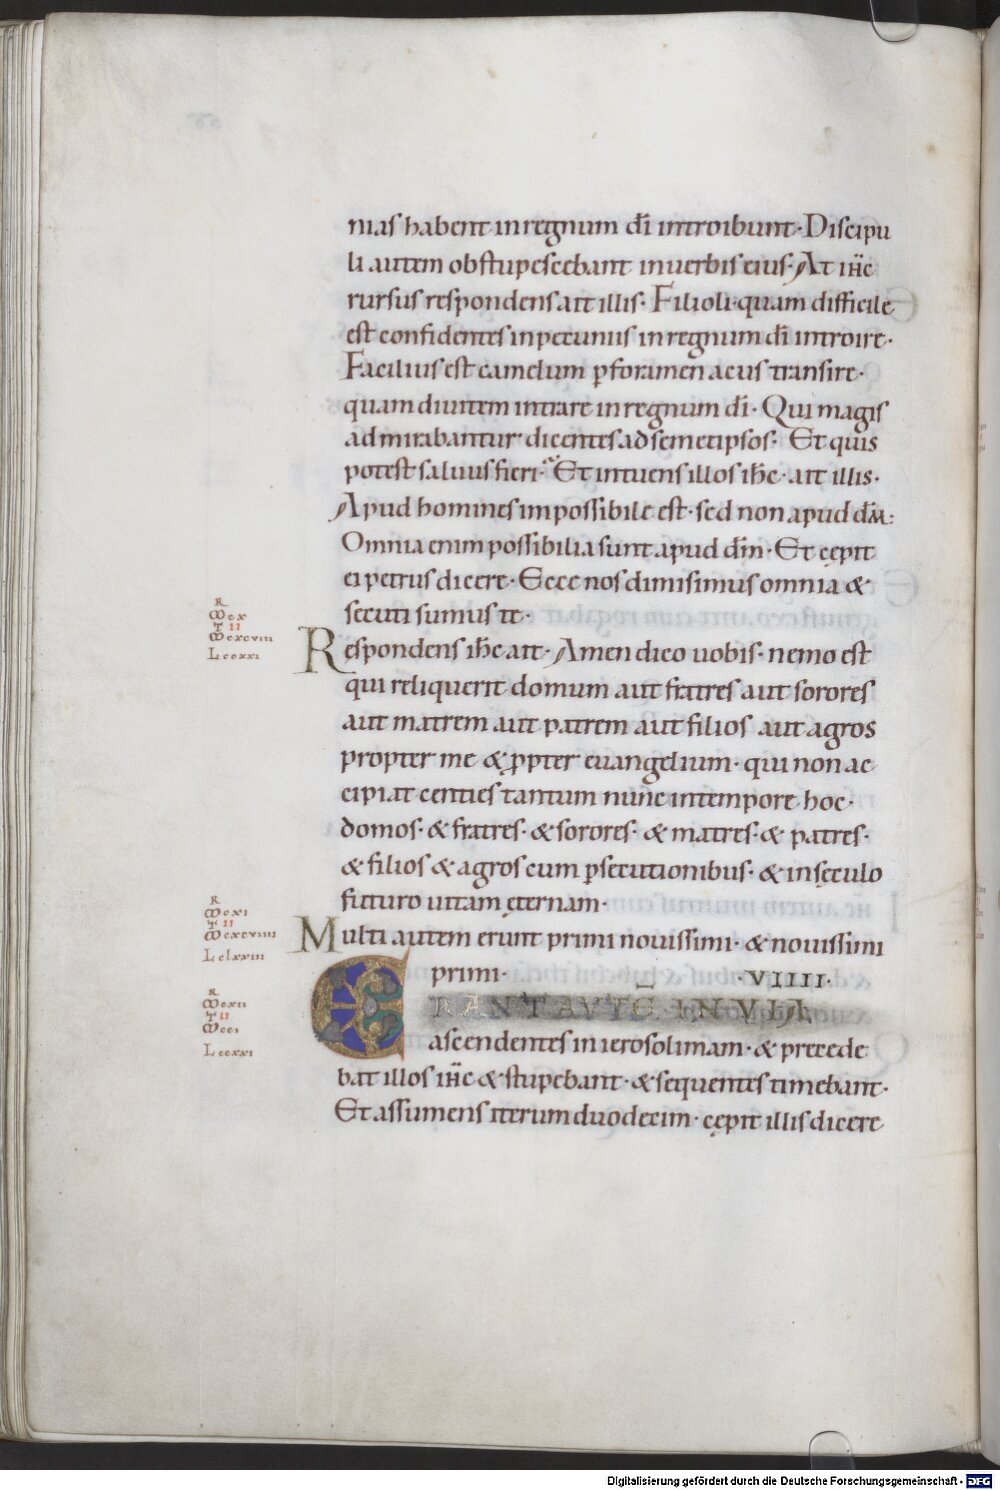 nias habent in regnum dī introibunt· Discipu
li autem obstupescebant in uerbis eius· At ih̄c
rursus respondens ait illis· Filioli· quam difficile
est confidentes in pecuniis in regnum dī introire·
Facilius est camelum ꝑ foramen acus transire·
quam diuitem intrare in regnum dī· Qui magis
admirabantur dicentes ad semetipsos· Et quis
potest saluus fieri· Et intuens illos ih̄c· ait illis·
Apud homines impossibile est· sed non apud dm̄·
Omnia enim possibilia sunt apud dm̄· Et cępit
ei petrus dicere· Ecce nos dimisimus omnia &
secuti sumus te·
R
M cx
T II
M cxcviii
L ccxxi
Respondens ih̄c ait· Amen dico uobis· nemo est
qui reliquerit domum aut fratres aut sorores
aut matrem aut patrem aut filios aut agros
propter me & ꝓpter euangelium· qui non ac
cipiat centies tantum nunc in tempore hoc·
domos· & fratres· & sorores· & matres· & patres·
& filios & agros cum ꝑsecutionibus· & in sęculo
futuro uitam ęternam·
R
M cxi
T II
M cxcviiii
L clxxiii
Multi autem erunt primi nouissimi· & nouissimi
primi· ·VIIII·
R
M cxii
T II
M cci
L ccxxi
ERANT AVTĒ IN VIA
ascendentes in ierosolimam· & precede
bat illos ih̄c & stupebant· & sequentes timebant·
Et assumens iterum duodecim· cępit illis dicere
Digitalisierung gefördert durch die Deutsche Forschungsgemeinschaft - DFG